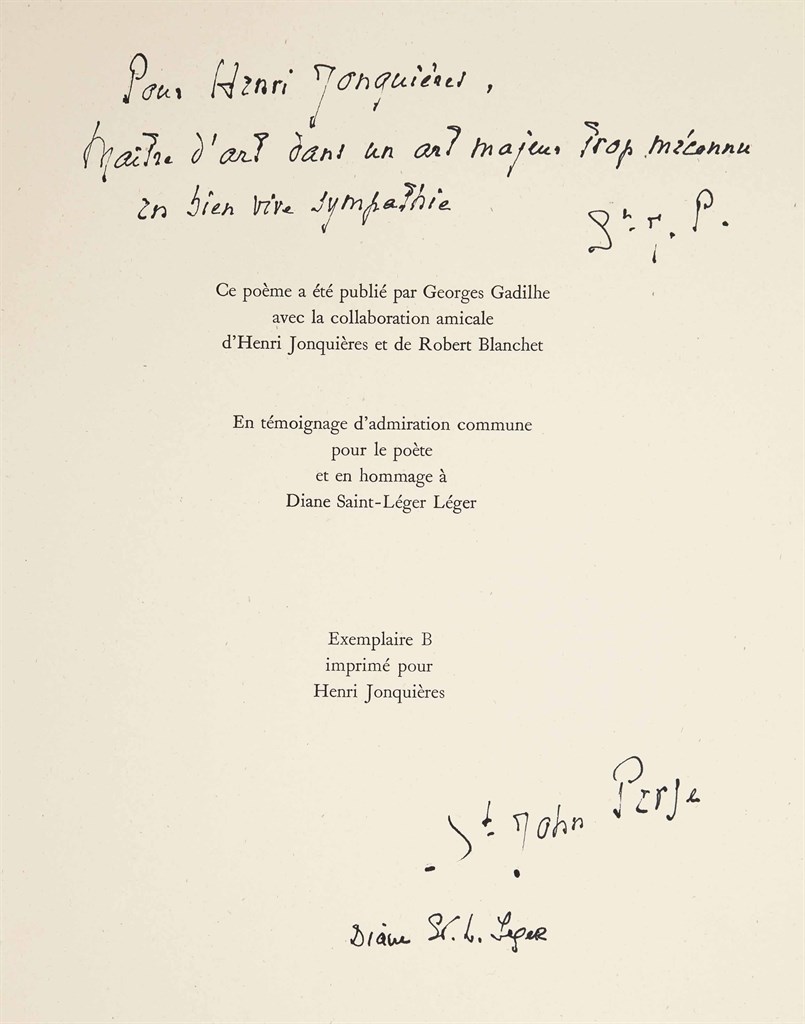 Pour Henri Jonquières,
Maître d'art dans un art majeur trop méconnu
en bien vive sympathie
St. J. P.
Ce poème a été publié par Georges Gadilhe
avec la collaboration amicale
d'Henri Jonquières et de Robert Blanchet
En témoignage d'admiration commune
pour le poète
et en hommage à
Diane Saint-Léger Léger
Exemplaire B
imprimé pour
Henri Jonquières
St. John Perse
Diane St. L. Leger